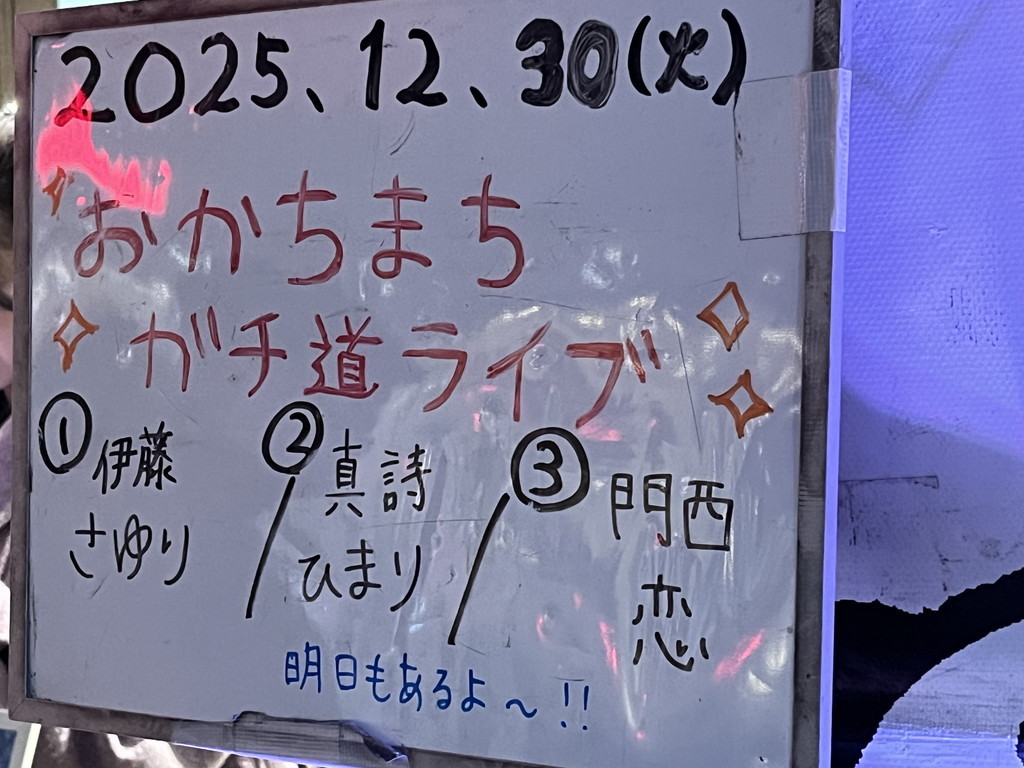 2025、12、30(火)
おかちまち
ガチ道ライブ
① 伊藤 さゆり
② 真詩 ひまり
③ 門西 恋
明日もあるよ～!!